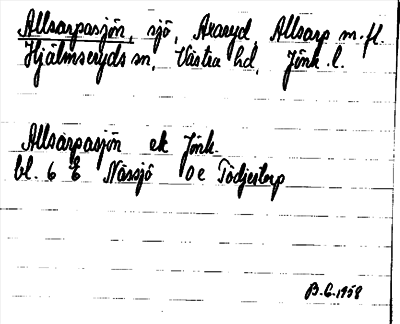 Allsarpasjön, sjö, Araryd, Allsarp m.fl.
Hjälmseryds sn, Västra hd, Jönk. l.
Allsarpasjön ek Jönk.
bl. 6 E Nässjö 0 e Tödjestorp
B.G. 1958